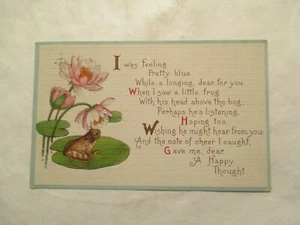 I was feeling
Pretty blue
While a longing, dear, for you
When I saw a little frog
With his head above the bog,
Perhaps he's listening,
Hoping too
Wishing he might hear from you
And the note of cheer I caught,
Gave me, dear,
A Happy
Thought